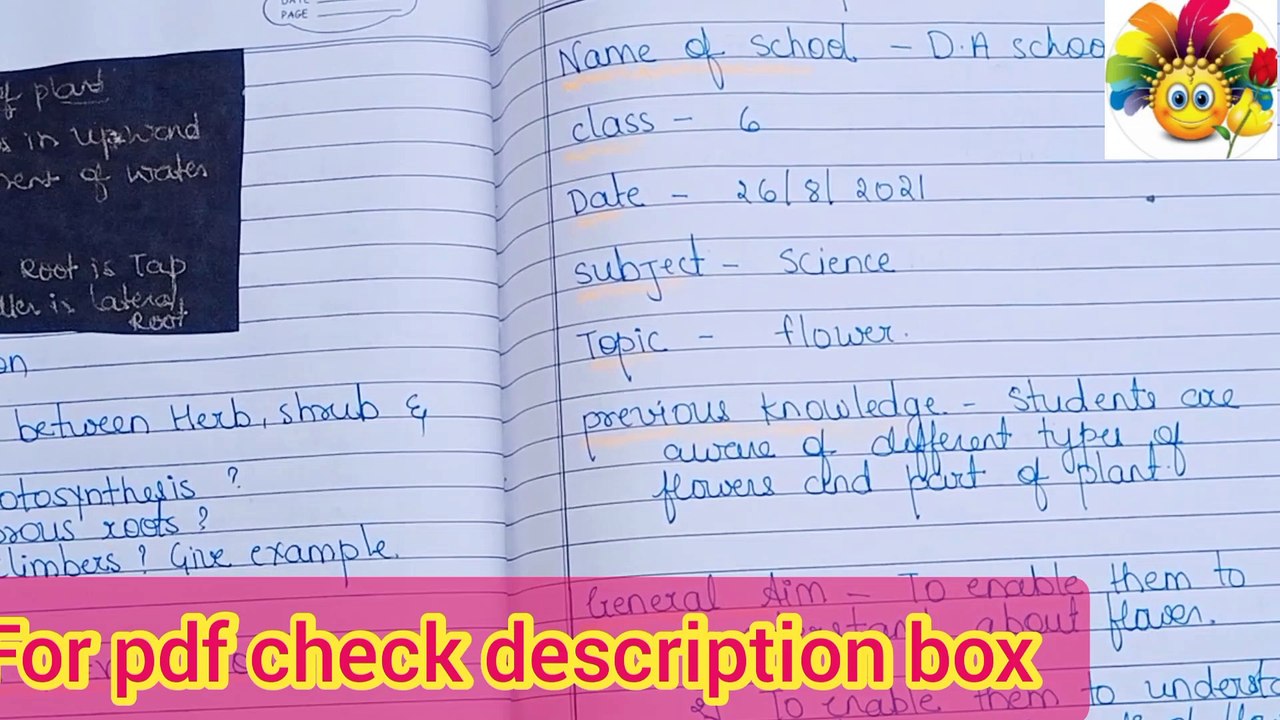 DATE
PAGE
of plant
s in upward
ment of water
Root is Tap
ller is lateral
Root
on
between Herb, shrub &
otosynthesis ?
rous roots ?
climbers ? Give example.
Name of school - D.A schoo
class - 6
Date - 26/8/2021
subject - science
Topic - flower.
previous knowledge - students are
aware of different types of
flowers and part of plant.
General Aim - To enable them to
about flower.
2) To enable them to understa
For pdf check description box